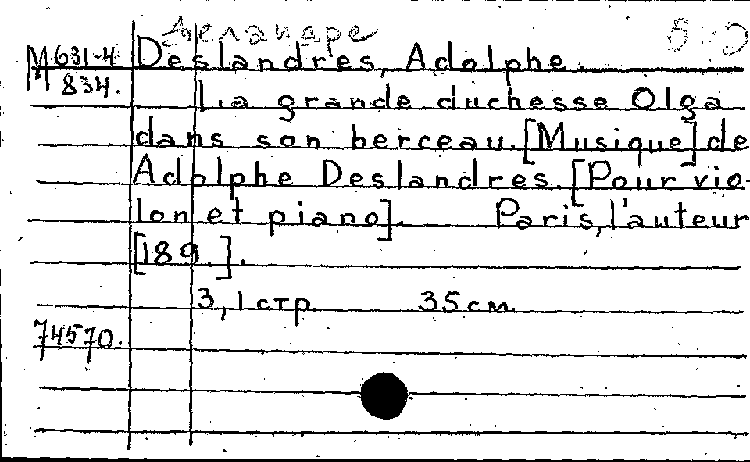 М 631-4
834.
Deslandres, Adolphe.
La grande duchesse Olga
dans son berceau. [Musique] de
Adolphe Deslandres. [Pour vio-
lon et piano]. Paris, l'auteur
[189.].
3, 1 стр. 35 см.
74570.